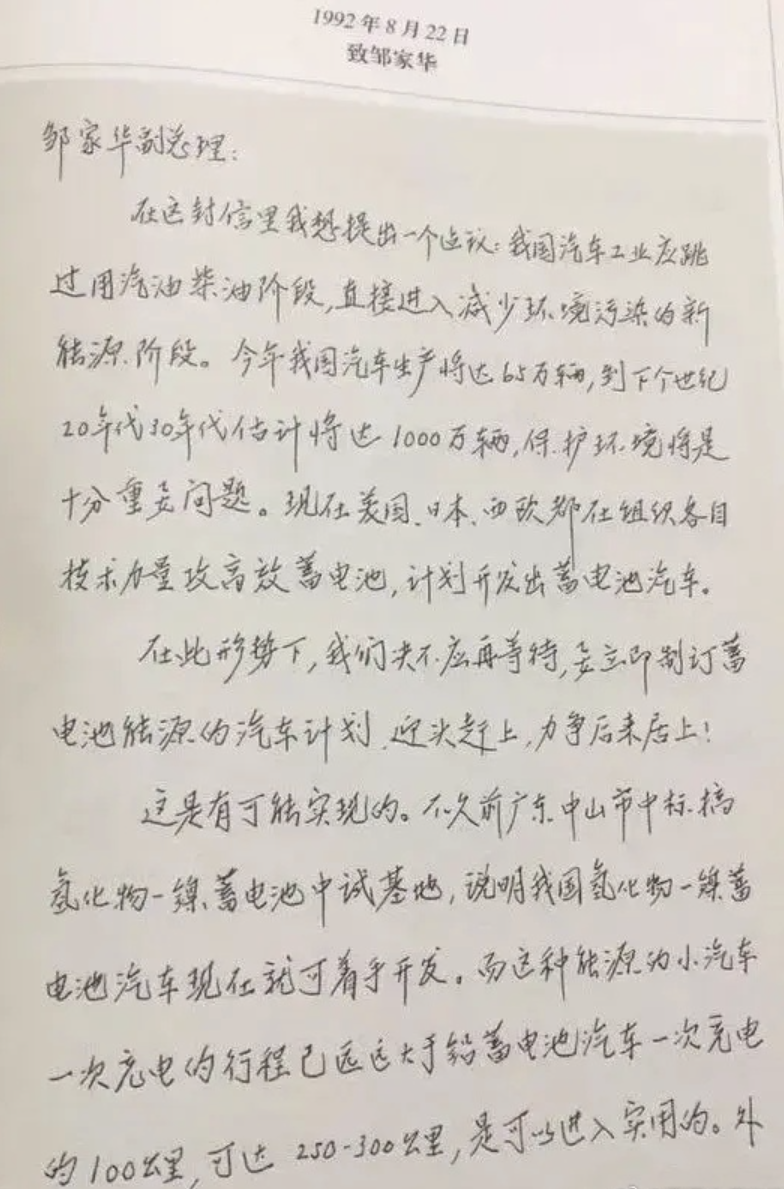 1992年8月22日
致邹家华
邹家华副总理:
在这封信里我想提出一个建议:我国汽车工业应跳
过用汽油柴油阶段,直接进入减少环境污染的新
能源阶段。今年我国汽车生产将达65万辆,到下个世纪
20年代30年代估计将达1000万辆,保护环境将是
十分重要问题。现在美国、日本、西欧都在组织各自
技术力量攻高效蓄电池,计划开发出蓄电池汽车。
在此形势下,我们决不应再等待,要立即制订蓄
电池能源的汽车计划,迎头赶上,力争后来居上!
这是有可能实现的。不久前广东中山市中标搞
氢化物-镍蓄电池中试基地,说明我国氢化物-镍蓄
电池汽车现在就可着手开发。而这种能源的小汽车
一次充电的行程已远远大于铅蓄电池汽车一次充电
的100公里,可达250-300公里,是可以进入实用的。外